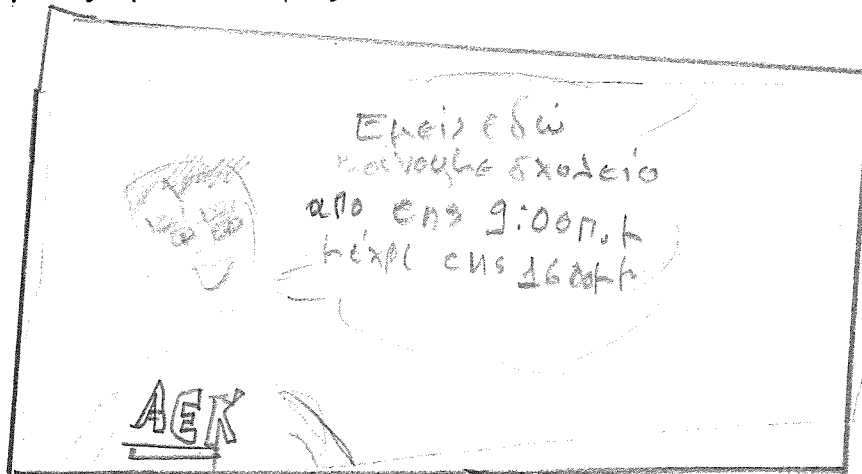 Εμείς εδώ
σχολείο
απο της 9:00π.μ
μέχρι της 16 00μμ
ΑΕΚ